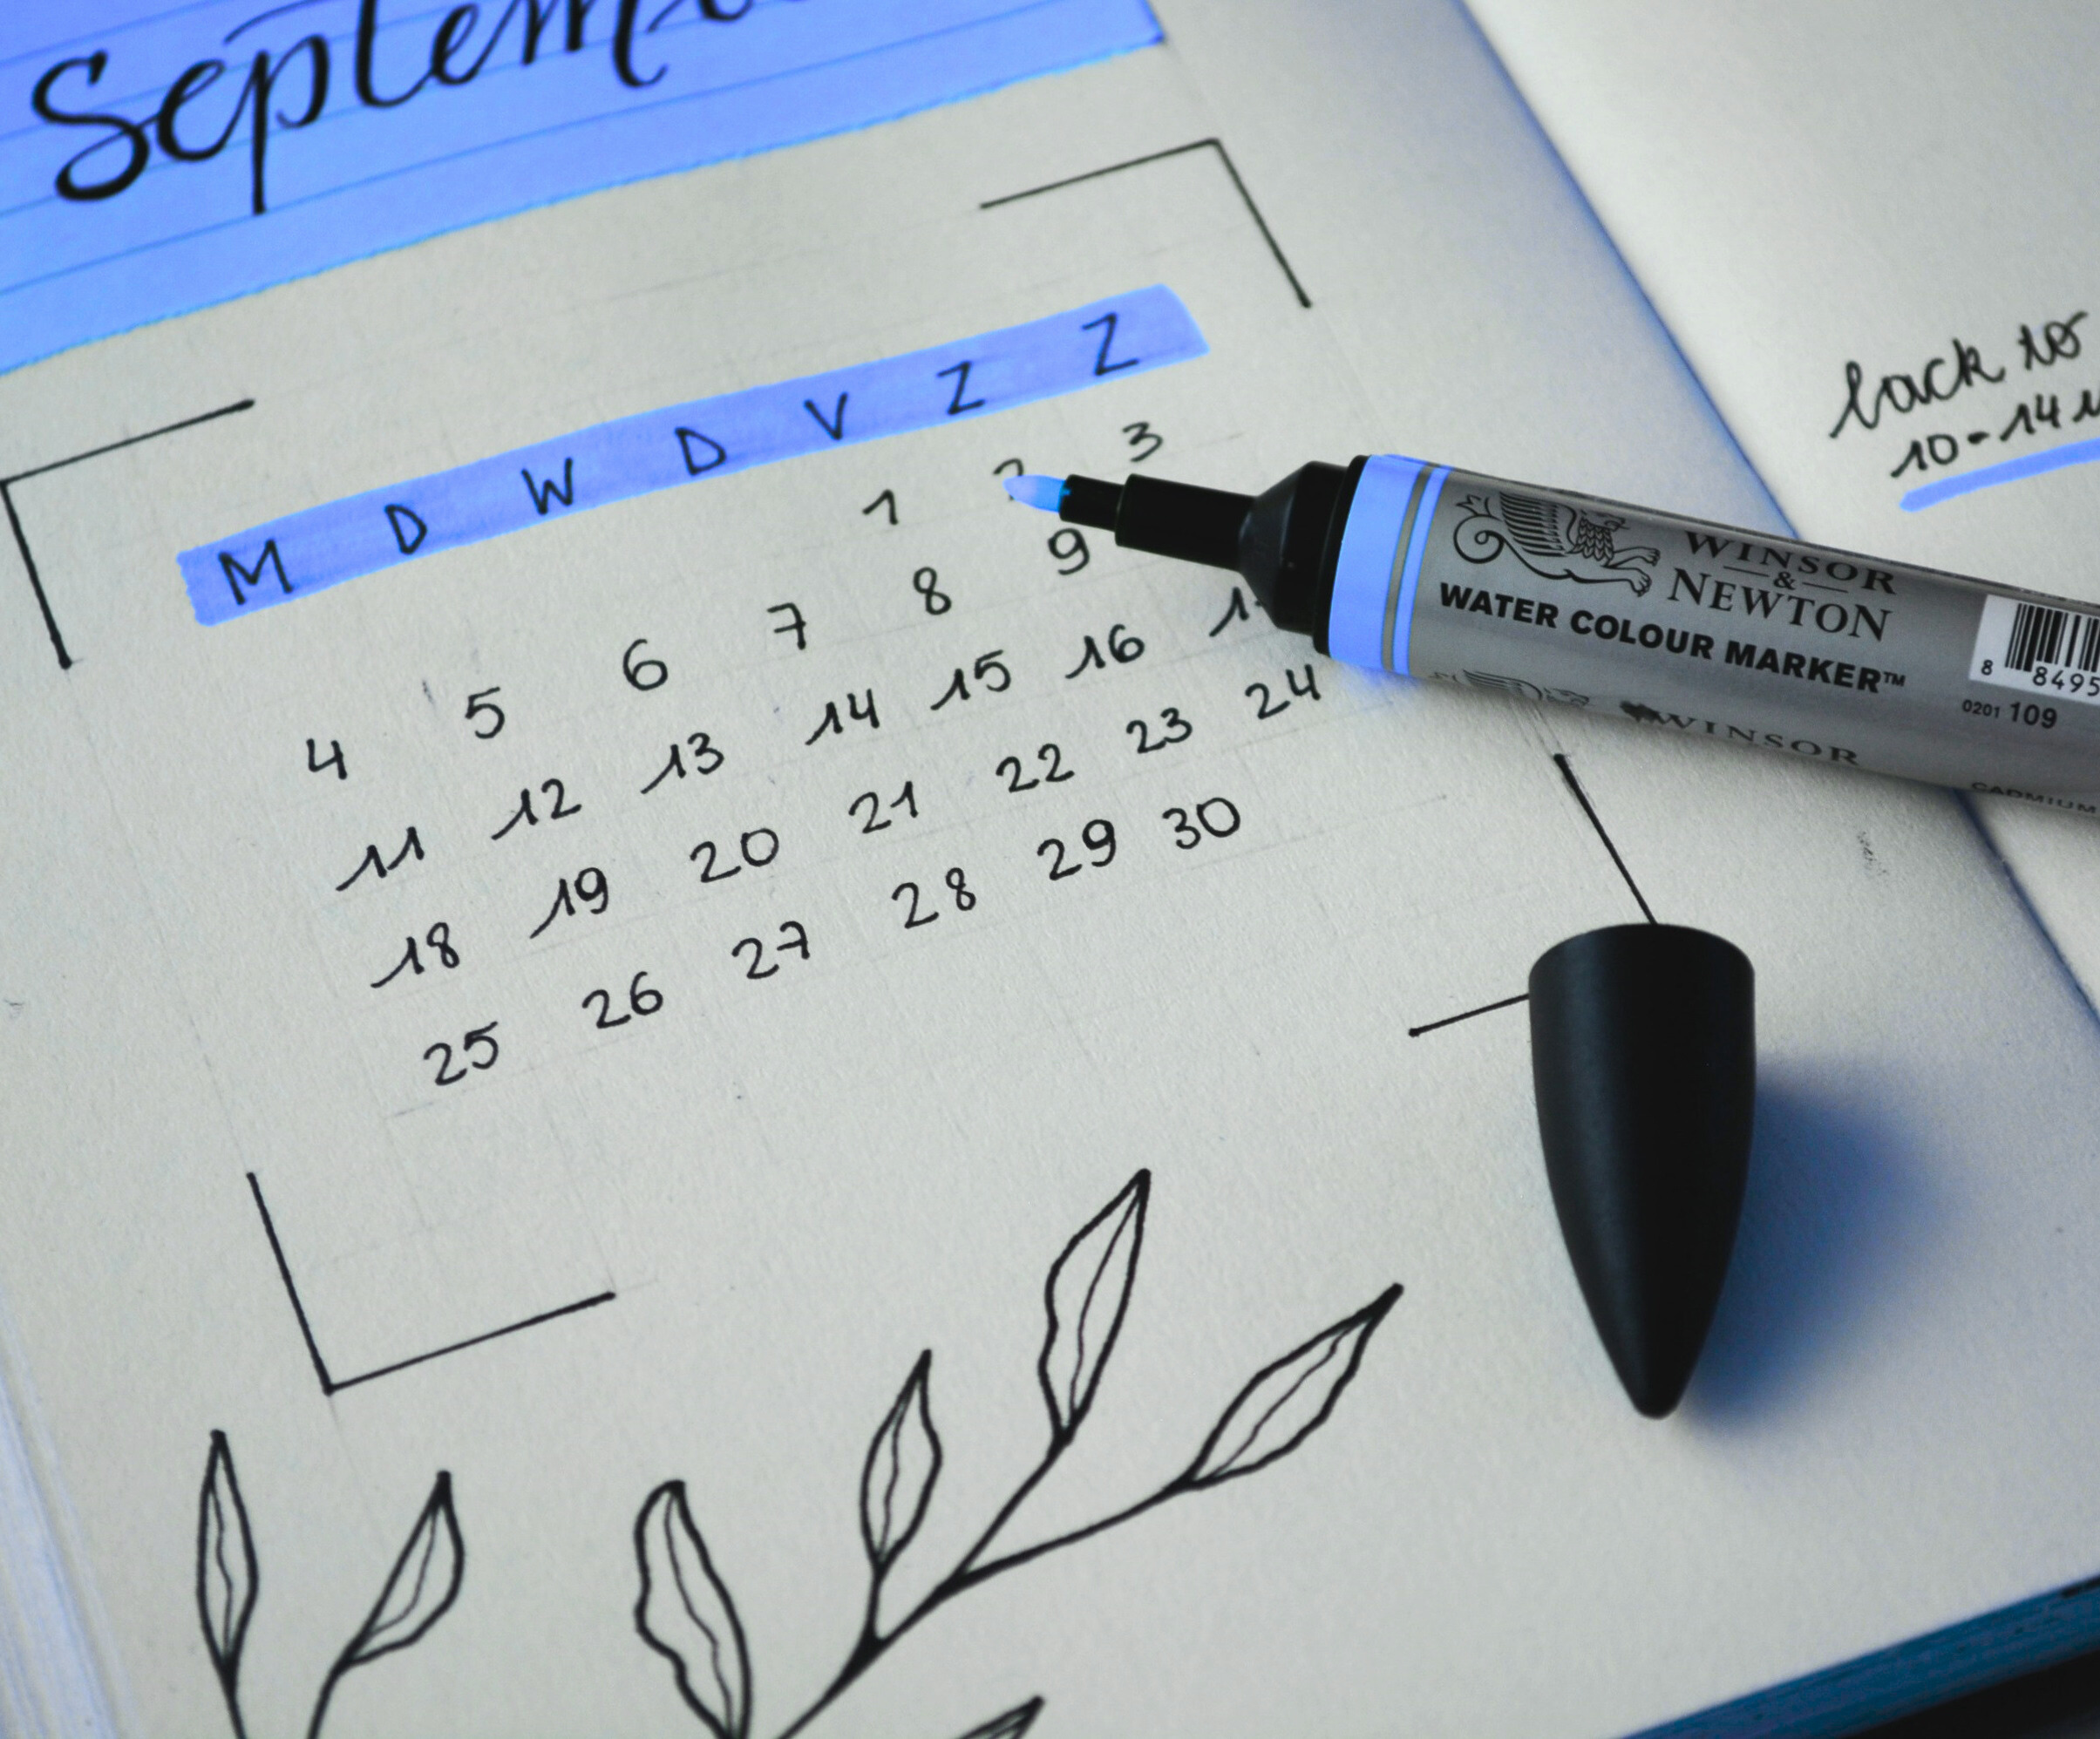 Septem
M D W D V Z Z
1 2 3
4 5 6 7 8 9
11 12 13 14 15 16
18 19 20 21 22 23 24
25 26 27 28 29 30
back to
10-14
WINSOR
&
NEWTON
WATER COLOUR MARKER™
8 8495
0201 109
WINSOR
CADMIUM